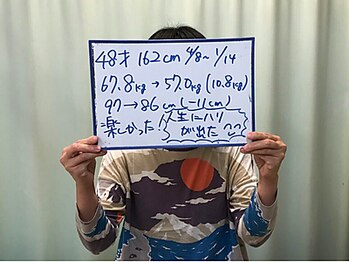 48才 162cm 4/8~1/14
67.8kg→57.0kg(10.8kg)
97→86cm(-11cm)
楽しかった! 人生にハリ
が出た